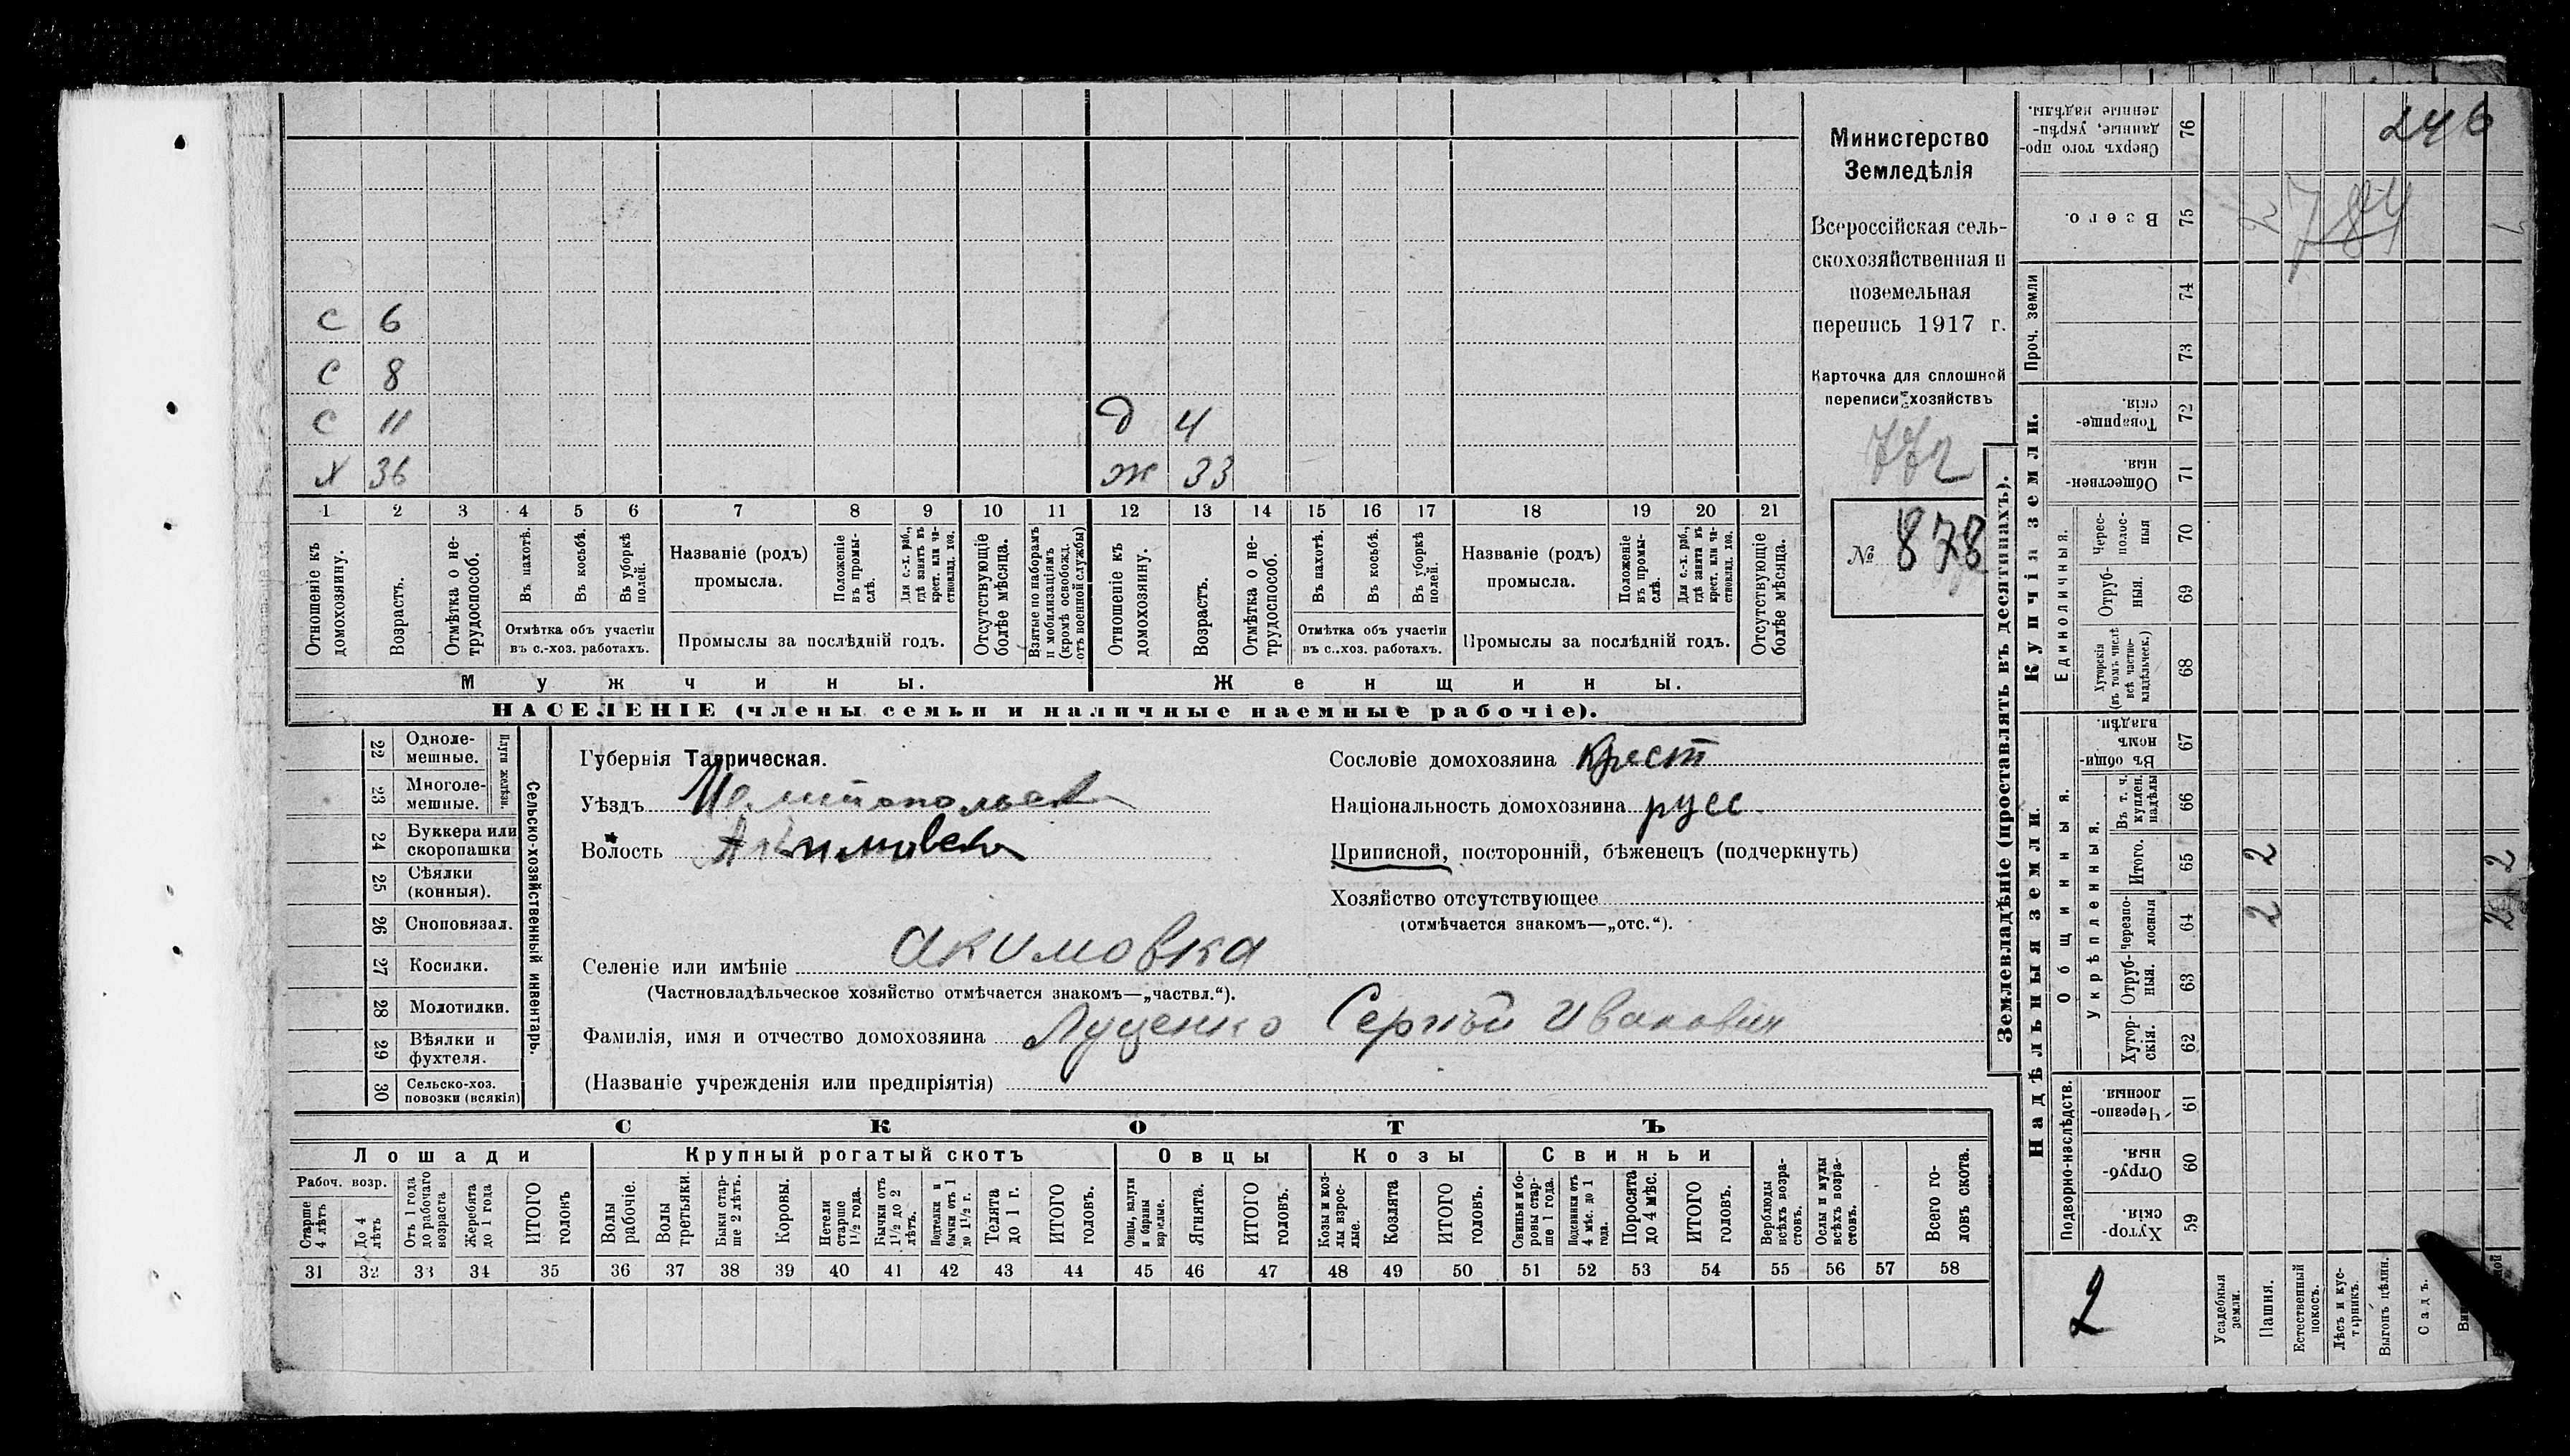 С 6
С 8
С 11 д 4
Х 36 ж 33
1 2 3 4 5 6 7 8 9 10 11 12 13 14 15 16 17 18 19 20 21
Отношеніе къ домохозяину.
Возрастъ.
Отмѣтка о не-трудоспособ.
Въ пахотѣ.
Въ косьбѣ.
Въ уборкѣ полей.
Отмѣтка объ участіи
въ с.-хоз. работахъ.
Названіе (родъ)
промысла.
Положеніе въ промы-слѣ.
Для с.-х. раб., гдѣ занятъ въ крест. или ча-стновлад. хоз.
Промыслы за послѣдній годъ.
Отсутствующіе болѣе мѣсяца.
Взятые по наборамъ и мобилизаціямъ (кромѣ освобожд. отъ военной службы)
Отношеніе къ домохозяину.
Возрастъ.
Отмѣтка о не-трудоспособ.
Въ пахотѣ.
Въ косьбѣ.
Въ уборкѣ полей.
Отмѣтка объ участіи
въ с.-хоз. работахъ.
Названіе (родъ)
промысла.
Положеніе въ промы-слѣ.
Для с.-х. раб., гдѣ занята въ крест. или ча-стновлад. хоз.
Промыслы за послѣдній годъ.
Отсутствующіе болѣе мѣсяца.
Мужчины. Женщины.
НАСЕЛЕНІЕ (члены семьи и наличные наемные рабочіе).
Министерство
Земледѣлія
Всероссійская сель-
скохозяйственная и
поземельная
перепись 1917 г.
Карточка для сплошной
переписи хозяйствъ
772
№ 878
22 Одноле-мешные.
23 Многоле-мешные.
Плуги желѣзн.
24 Буккера или скоропашки
25 Сѣялки (конныя).
26 Сноповязал.
27 Косилки.
28 Молотилки.
29 Вѣялки и фухтеля.
30 Сельско-хоз. повозки (всякія)
Сельско-хозяйственный инвентарь.
Губернія Таврическая.
Уѣздъ Мелитопольск
Волость Акимовска
Селеніе или имѣніе Акимовка
(Частновладѣльческое хозяйство отмѣчается знакомъ—„частвл.“).
Фамилія, имя и отчество домохозяина Луценко Сергѣй Иванович
(Названіе учрежденія или предпріятія)
Сословіе домохозяина Крест
Національность домохозяина русс
Приписной, посторонній, бѣженецъ (подчеркнуть)
Хозяйство отсутствующее
(отмѣчается знакомъ—„отс.“).
СКОТЪ
Лошади Крупный рогатый скотъ Овцы Козы Свиньи
Рабоч. возр.
Старше 4 лѣтъ
До 4 лѣтъ
Отъ 1 года до рабочаго возраста
Жеребята до 1 года
ИТОГО головъ
Волы рабочіе.
Волы третьяки.
Быки стар-ше 2 лѣтъ.
Коровы.
Нетели старше 1½ года.
Бычки отъ 1½ до 2 лѣтъ.
Подтелки и бычки отъ 1 до 1½ г.
Телята до 1 г.
ИТОГО головъ.
Овцы, валухи и бараны взрослые.
Ягнята.
ИТОГО головъ.
Козы и коз-лы взрос-лые.
Козлята
ИТОГО головъ.
Свиньи и бо-ровы стар-ше 1 года.
Подсвинки отъ 4 мѣс. до 1 года.
Поросята до 4 мѣс.
ИТОГО головъ.
Верблюды всѣхъ возра-стовъ.
Ослы и мулы всѣхъ возра-стовъ.
Всего го-ловъ скота.
31 32 33 34 35 36 37 38 39 40 41 42 43 44 45 46 47 48 49 50 51 52 53 54 55 56 57 58
Землевладѣніе (проставлять въ десятинахъ).
Купчія земли.
Надѣльныя земли.
Сверхъ того про-данные, укрѣп-ленные надѣлы. 76
246
Всего. 75 2 784
Проч. земли 74
73
Товарище-скія. 72
Обществен-ныя. 71
Единоличныя.
Черес-полос-ныя 70
Отруб-ныя. 69
Хуторскія (въ томъ числѣ всѣ частно-владѣльческ.) 68
Общинныя.
Въ общин-номъ владѣн. 67
Укрѣпленныя.
Въ т. ч. куплен. надѣлы 66
Итого. 65 2 2
черезпо-лосныя 64 2 2
Отруб-ныя. 63
Хутор-скія. 62
Подворно-наслѣдств.
Черезпо-лосныя 61
Отруб-ныя. 60
Хутор-скія. 59
2
Усадебныя земли.
Пашня.
Естественный покосъ.
Лѣсъ и кус-тарникъ.
Выгонъ цѣлин.
Садъ.